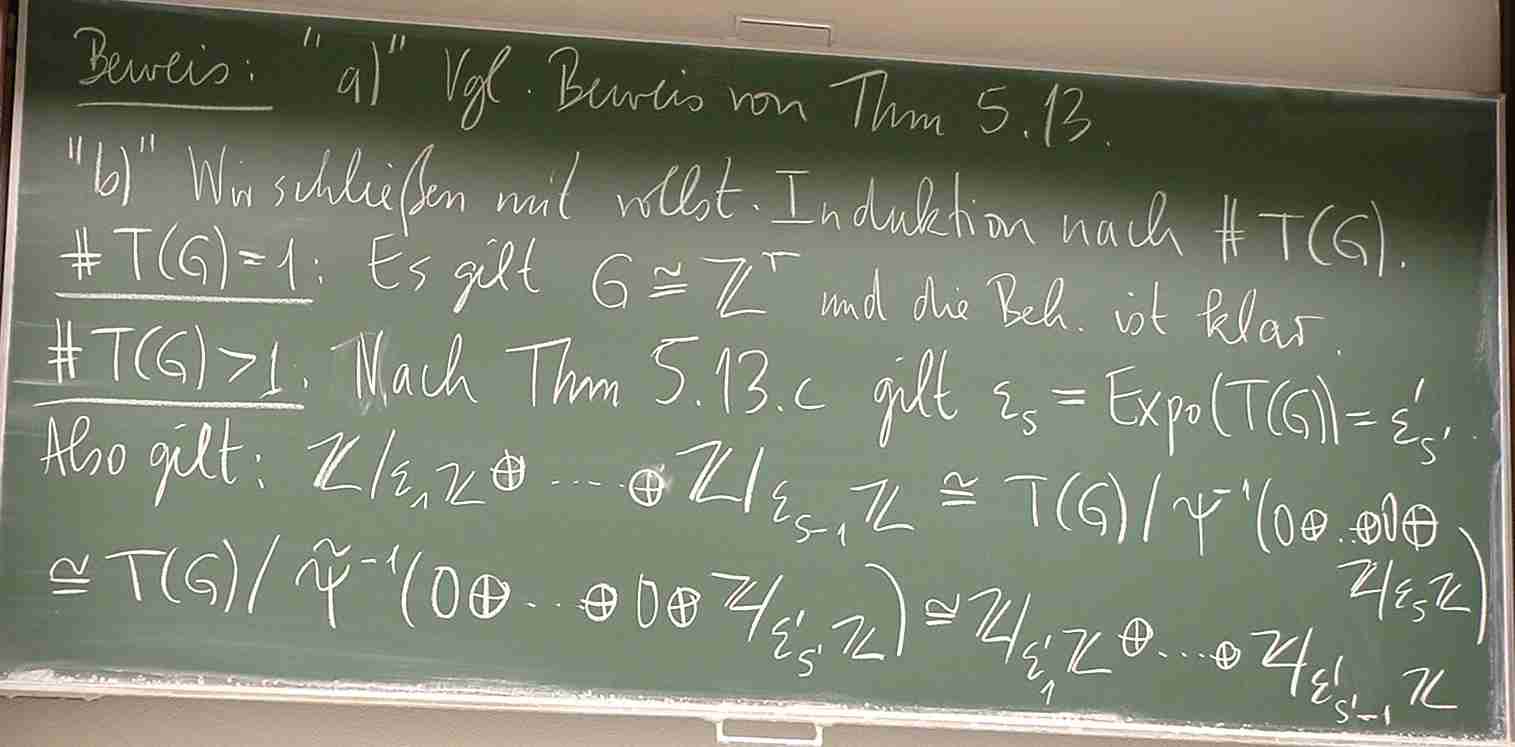 Beweis: "a)" Vgl. Beweis von Thm 5.13.
"b)" Wir schließen mit vollst. Induktion nach # T(G).
# T(G)=1: Es gilt G ≅ ℤʳ und die Beh. ist klar.
# T(G)>1: Nach Thm 5.13.c gilt ε_s = Expo(T(G)) = ε'_s'.
Also gilt: ℤ/ε₁ℤ ⊕ ..... ⊕ ℤ/ε_{s-1}ℤ ≅ T(G)/ψ⁻¹(0⊕..⊕0⊕
ℤ/ε_sℤ)
≅ T(G)/ψ̃⁻¹(0⊕...⊕0⊕ℤ/ε'_s'ℤ) ≅ ℤ/ε'₁ℤ ⊕....⊕ ℤ/ε'_{s'-1}ℤ